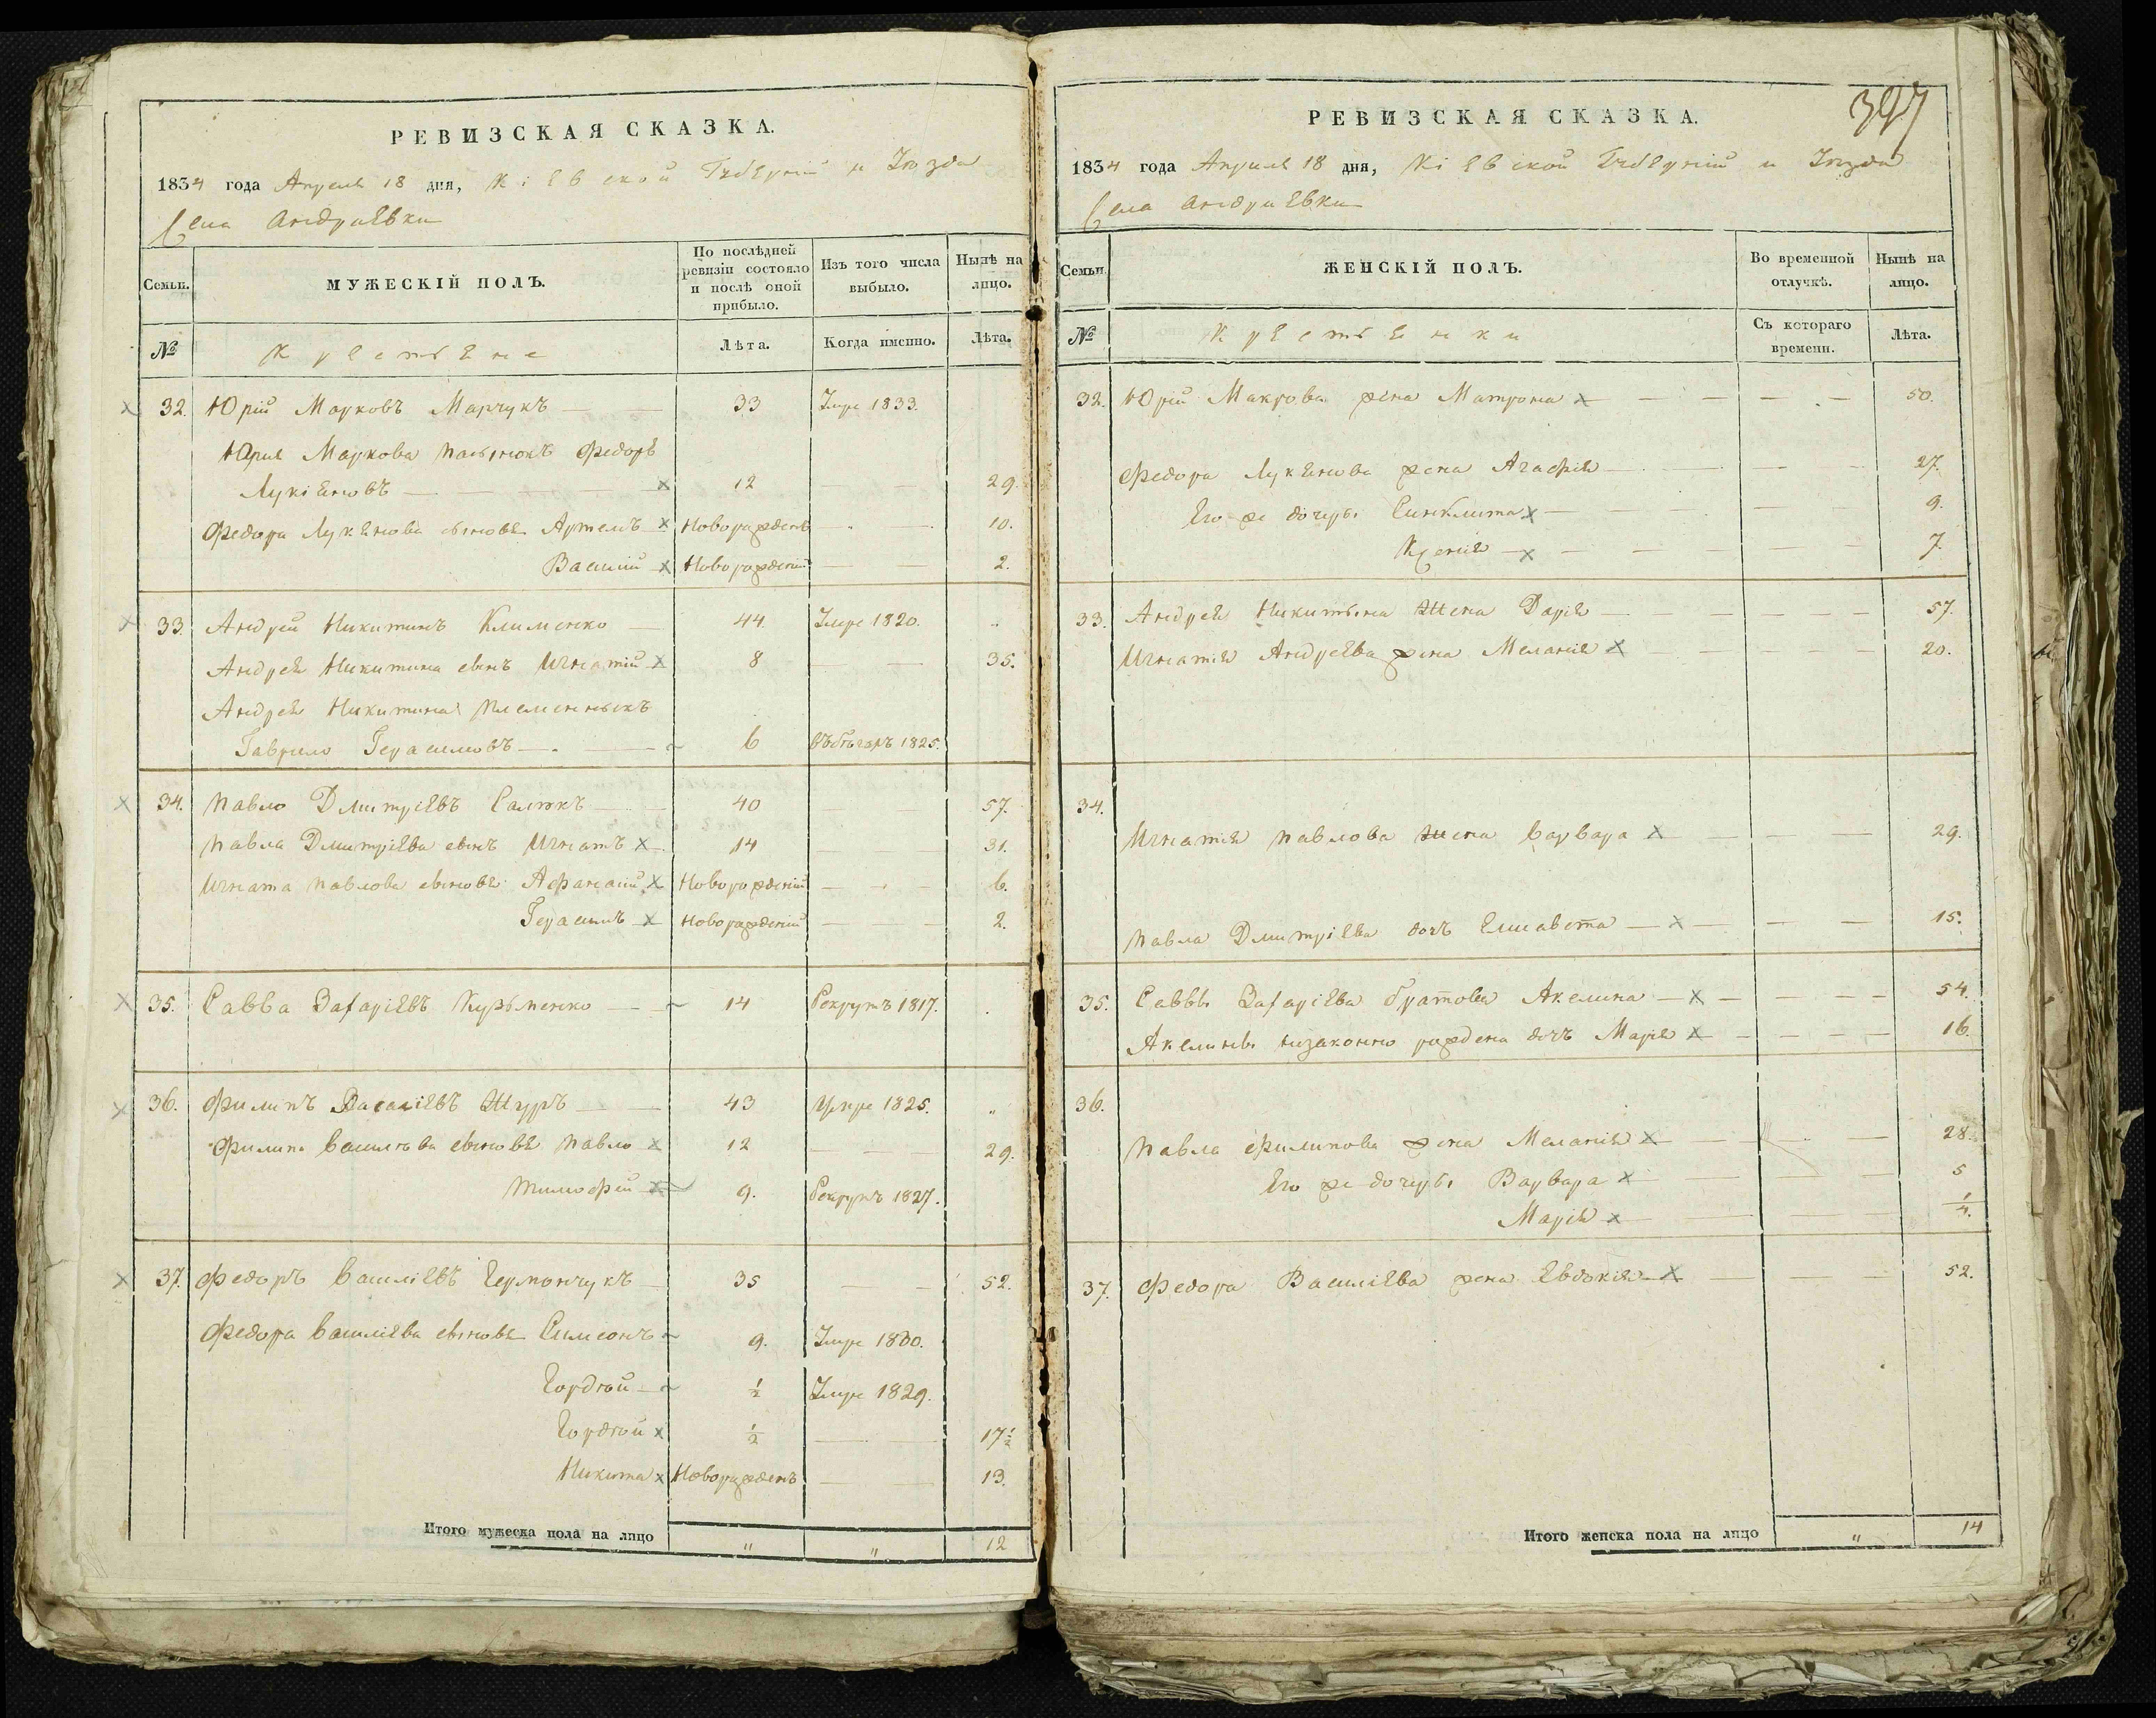 РЕВИЗСКАЯ СКАЗКА.
1834 года Апреля 18 дня, Кіевской Губерніи и Уѣзда
Села Андриевки
Семьи.
МУЖЕСКІЙ ПОЛЪ.
По послѣдней ревизіи состояло и послѣ оной прибыло.
Изъ того числа выбыло.
Нынѣ на лицо.
№
Крестьяне
Лѣта.
Когда именно.
Лѣта.
32. Юрій Марковъ Марчукъ 33 Умре 1833.
Юрія Маркова пасынокъ Федоръ
Лукіяновъ 12 29.
Федора Лукянова сыновя Артемъ Новорожденъ 10.
Василій Новорожденій 2.
33. Андрей Никитинъ Клименко 44. Умре 1820. "
Андрея Никитина сынъ Игнатій 8 35.
Андрея Никитина племенныкъ
Гаврило Герасимовъ 6 въбѣгахъ 1825.
34. Павло Дмитріевъ Салюкъ 40 57.
Павла Дмитріева сынъ Игнатъ 14 31.
Игната Павлова сыновя Афанасій Новорожденій 6.
Герасимъ Новорожденій 2.
35. Савва Захаріевъ Кузьменко 14 Рекрутъ 1817.
36. Филипъ Василіевъ Шуръ 43 Умре 1825. "
Филипа Василіева сыновя Павло 12 29.
Тимофей 9. Рекрутъ 1827.
37. Федоръ Василіевъ Гермончукъ 35 52.
Федора Василіева сыновя Симеонъ 9. Умре 1830.
Гордѣй ½ Умре 1829.
Гордѣй ½ 17½
Никита Новорожденъ 13.
Итого мужеска пола на лицо " " 12
397
РЕВИЗСКАЯ СКАЗКА.
1834 года Апреля 18 дня, Кіевской Губерніи и Уѣзда
Села Андриевки
Семьи.
ЖЕНСКІЙ ПОЛЪ.
Во временной отлучкѣ.
Нынѣ на лицо.
№
Крестьянки
Съ котораго времени.
Лѣта.
32. Юрій Макрова жена Матрона 50.
Федора Лукянова жена Агафія 27.
Его же дочеры Синклита 9.
Ксенія 7.
33. Андрея Никитына жена Дарія 57.
Игнатія Андреева жена Меланія 20.
34.
Игнатія Павлова жена Варвара 29.
Павла Дмитріева дочъ Елисавета 15.
35. Саввы Захаріева братова Акелина 54.
Акелины низаконно рождена дочъ Марія 16.
36.
Павла Филипова жена Меланія 28.
Его же дочеры Варвара 5
Марія ¼.
37. Федора Василіева жена Евдокія 52.
Итого женска пола на лицо " 14